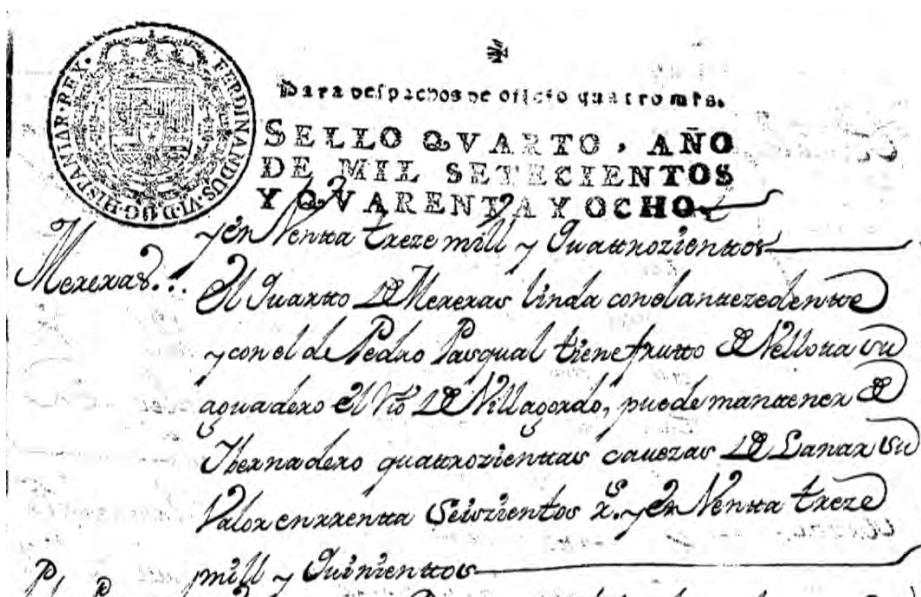 FERDINANDUS.VI.D.G.HISPANIAR.REX.
Para despachos de oficio quatro mrs.
SELLO QVARTO, AÑO
DE MIL SETECIENTOS
Y QVARENTA Y OCHO.
y en Ventta treze mill y Quattrozienttos
Mereras...
El Quartto de Mereras linda con el antezedentte
y con el de Pedro Pasqual tiene frutto de Vellotta su
aguadero el Rio de Villagordo, puede mantener de
Ybernadero quattrozienttas cavezas de Lanar su
Valor en rrentta Seiszientos rs. y en Ventta treze
mill y Quinienttos